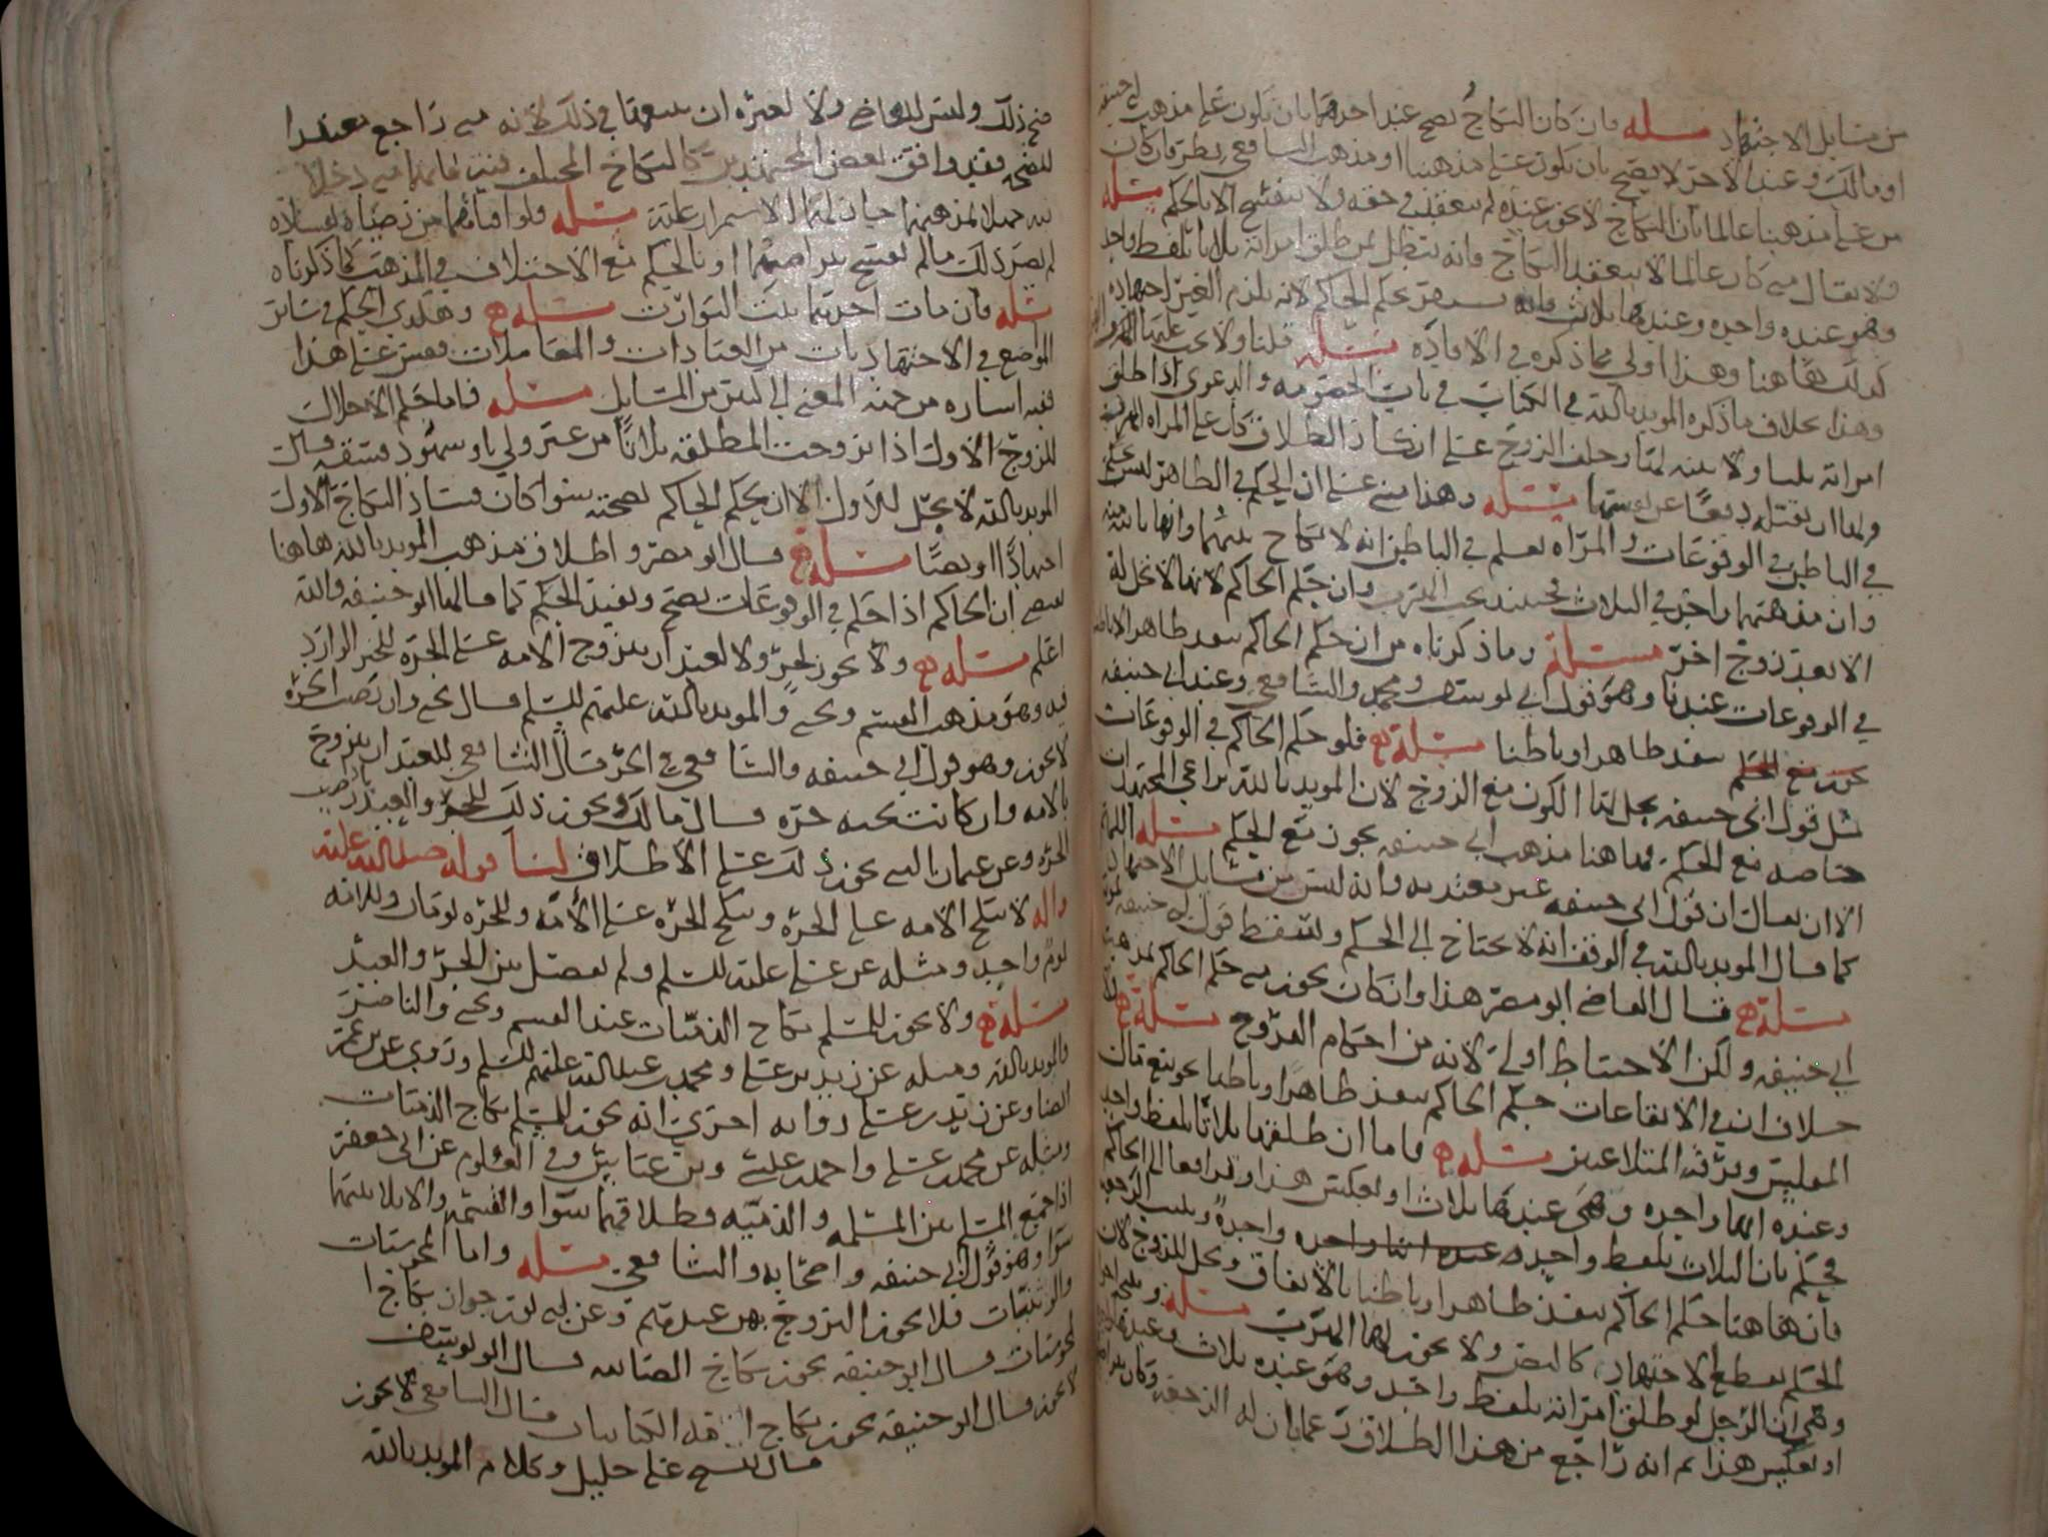 من مسايل الاجتهاد مسله فان كان النكاح يصح عند احدهما بان يكون على مذهب ابي حنيفه
او مالك وعند الاخر لا يصح بان يكون على مذهبنا او مذهب الشافعي نظر فان كان
من على مذهبنا عالما بان النكاح لا يجوز عنده لم ينعقد في حقه ولا ينفسخ الا بالحكم مسله
ولا يقال متى كان عالما لا ينعقد النكاح فانه يبطل بمن طلق امراته ثلاثا بلفظ واحد
وهو عنده واحده وعندها ثلاث فانه يحكم الحاكم لانه يلزم الغير اجتهاده
كذلك هاهنا وهذا اولى مما ذكره في الافاده مسله قلنا ولا يجب عليها
وهذا بخلاف ما ذكره المويد بالله في الكتاب في باب الخصومه والدعوى اذا طلق
امراته ثلثا ولا بينه لها وحلف الزوج على انكار الطلاق كان على المراه الهرب منه
ولها ان تقتله دفعا عن نفسها مسله وهذا مبني على ان الحكم في الظاهر ليس كالحكم
في الباطن في الوقوعات والمراه تعلم في الباطن انه لا نكاح بينهما وانها باينه منه
وان مذهبهما واحد في الثلاث فحينئذ يجب الهرب وان حكم الحاكم لانها لا تحل له
الا بعد زوج اخر مسئلة وما ذكرناه من ان حكم الحاكم ينفذ ظاهرا لا باطنا
في الوقوعات عندنا وهو قول ابي يوسف ومحمد والشافعي وعند ابي حنيفه
ينفذ ظاهرا وباطنا مسئلة فلو حكم الحاكم في الوقوعات
بمثل قول ابي حنيفه يحل لها الكون مع الزوج لان المويد بالله يراعي المجتهدات
خاصه مع الحكم وهاهنا مذهب ابي حنيفه يجوز مع الحكم مسله اللهم
الا ان يقال ان قول ابي حنيفه غير معتد به وانه ليس من مسايل الاجتهاد
كما قال المويد بالله في الوقف انه لا يحتاج الى الحكم ويسقط قول ابي حنيفه
مسئلة قال القاضي ابو مضر هذا وان كان يجوز متى حكم الحاكم بمذهب
ابي حنيفه ولكن الاحتياط اولى لانه من احكام الفروج مسئلة
خلاف ان في الايقاعات حكم الحاكم ينفذ ظاهرا وباطنا نحو بيع مال
المفلس وفرقة المتلاعنين مسله فاما ان طلقها ثلاثا بلفظ واحد
وعنده انها واحده وهي عندها ثلاث او بعكس هذا وترافعا الى الحاكم
فحكم بان الثلاث بلفظ واحد واحدة وثبتت الرجعه
فان هاهنا حكم الحاكم ينفذ ظاهرا وباطنا بالاتفاق وتحل للزوج لان
الحكم يقطع الاجتهاد كالنص ولا يجوز لها الهرب مسله
وهي ان الرجل لو طلق امراته بلفظ واحد وهو عنده ثلاث وعندها
او بعكس هذا ثم انه راجع من هذا الطلاق زعما بان له الرجعه وكان
صح ذلك وليس للقاضي ولا لغيره ان يمنعهما في ذلك لانه متى راجع معتقدا
للصحه فقد وافق بعض المجتهدين كالنكاح المختلف فيه فانهما متى دخلا
فيه جهلا لمذهبهما جاز لهما الاستمرار عليه مسئله ولو اقاما من
لم يضر ذلك ما لم يفسخ بتراضيهما او بالحكم مع الاختلاف في المذهب كما ذكرناه
مسله فان مات احدهما ثبت التوارث مسئله وهكذى الحكم في ساير
المواضع في الاجتهاديات من العبادات والمعاملات فقس على هذا
ففيه اشاره من جهة المعنى الى كثير من المسايل مسله فاما حكم الاحلال
للزوج الاول اذا تزوجت المطلقه ثلاثا من غير ولي او شهود فسقه قال
المويد بالله لا تحل للاول الا ان يحكم الحاكم بصحته سوا كان فساد النكاح الاول
اجتهادا او نصا مسئله قال ابو مضر واطلاق مذهب المويد بالله هاهنا
يقتضي ان الحاكم اذا حكم في الوقوعات يصح وينفذ الحكم كما قالها ابو حنيفه والله
اعلم مسئله ولا يجوز لحر ولا لعبد ان يتزوج الامه على الحره للخبر الوارد
فيه وهو مذهب القسم ويحيى والمويد بالله عليهم السلم قال يحيى وان رضيت الحره
لا يجوز وهو قول ابي حنيفه والشافعي في الحر قال الشافعي للعبد ان يتزوج
بالامه وان كانت تحته حره قال مالك يجوز ذلك للحر والعبد
الحره وعن عثمان البتي يجوز ذلك على الاطلاق لنا قوله صلى الله عليه
واله لا تنكح الامه على الحره وتنكح الحره على الامه وللحره يومان وللامه
يوم واحد ومثله عن علي عليه السلم ولم يفصل بين الحر والعبد
مسئلة ولا يجوز للمسلم نكاح الذميات عند القسم ويحيى والناصر
والمويد بالله ومثله عن زيد بن علي ومحمد بن عبد الله عليهم السلم وروي عن ابن عمر
ايضا وعن زيد بن علي روايه اخرى انه يجوز للمسلم نكاح الذميات
ومثله عن محمد بن علي واحمد بن عيسى وابن عباس وفي العلوم عن ابي جعفر
اذا جمع المسلم بين المسلمه والذميه فطلاقهما سوا والقسمه والايلا بينهما
سوا وهو قول ابي حنيفه واصحابه والشافعي مسله واما المجوسيات
والوثنيات فلا يجوز التزوج بهن عندهم وعن ابي ثور جواز نكاح
المجوسيات قال ابو حنيفه يجوز نكاح الصابيه قال ابو يوسف
لا يجوز قال ابو حنيفه يجوز نكاح الكتابيات قال الشافعي لا يجوز
قال الشيخ علي خليل وكلام المويد بالله